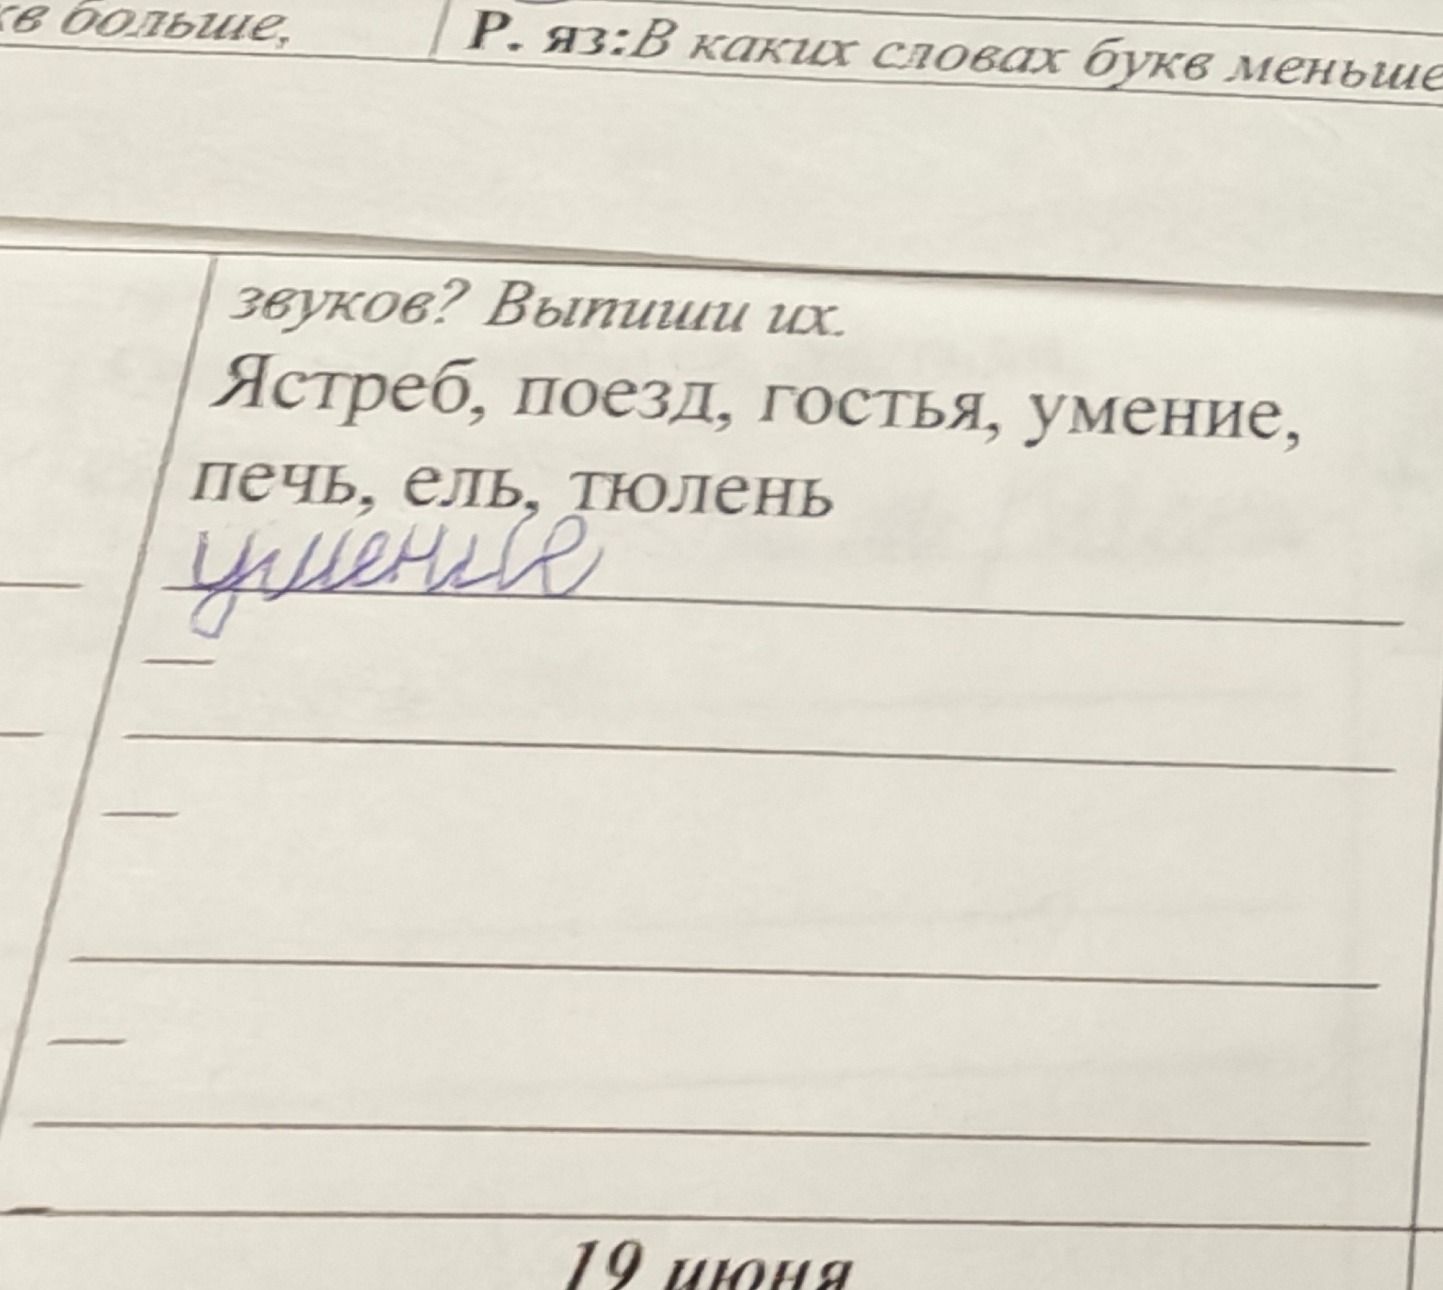 кв больше,
Р. яз:В каких словах букв меньше
звуков? Выпиши их.
Ястреб, поезд, гостья, умение,
печь, ель, тюлень
умение
19 июня